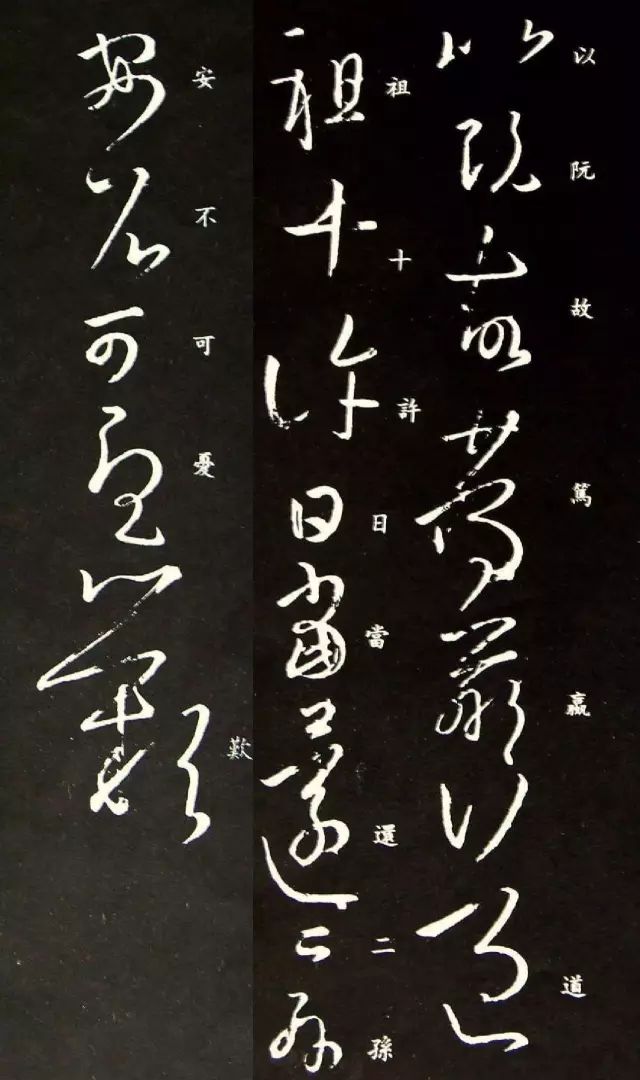 以阮故篤羸行道
祖十許日當還二孫
安不可憂歎